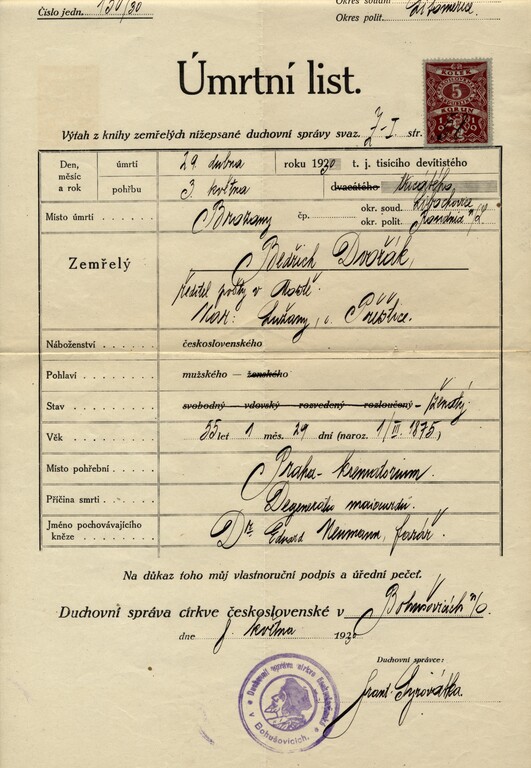 Číslo jedn. 150/30
Okres soudní
Okres polit. Litoměřice.
Úmrtní list.
ČS. KOLEK
5
KORUN
Výtah z knihy zemřelých nížepsané duchovní správy svaz. Z-I. str.
Den, měsíc a rok
úmrtí 29 dubna roku 1930 t. j. tisícího devítistého
pohřbu 3. května dvacátého třicátého
Místo úmrtí Brozany čp. okr. soud. Libochovice
okr. polit. Roudnice n/L
Zemřelý Bedřich Dvořák,
ředitel pošty v
Nar: Lužany, o. Přeštice.
Náboženství československého
Pohlaví mužského — ženského
Stav svobodný — vdovský — rozvedený — rozloučený — ženatý
Věk 55 let 1 měs. 29 dní (naroz. 1/III. 1875)
Místo pohřební Praha-krematorium.
Příčina smrti Degeneratio
Jméno pochovávajícího kněze Dr Eduard Neumann, farář.
Na důkaz toho můj vlastnoruční podpis a úřední pečeť.
Duchovní správa církve československé v Bohušovicích n/O.
dne 8. května 1930
Duchovní správce:
Frant. Syrovátka.
Duchovní správa církve československé v Bohušovicích.